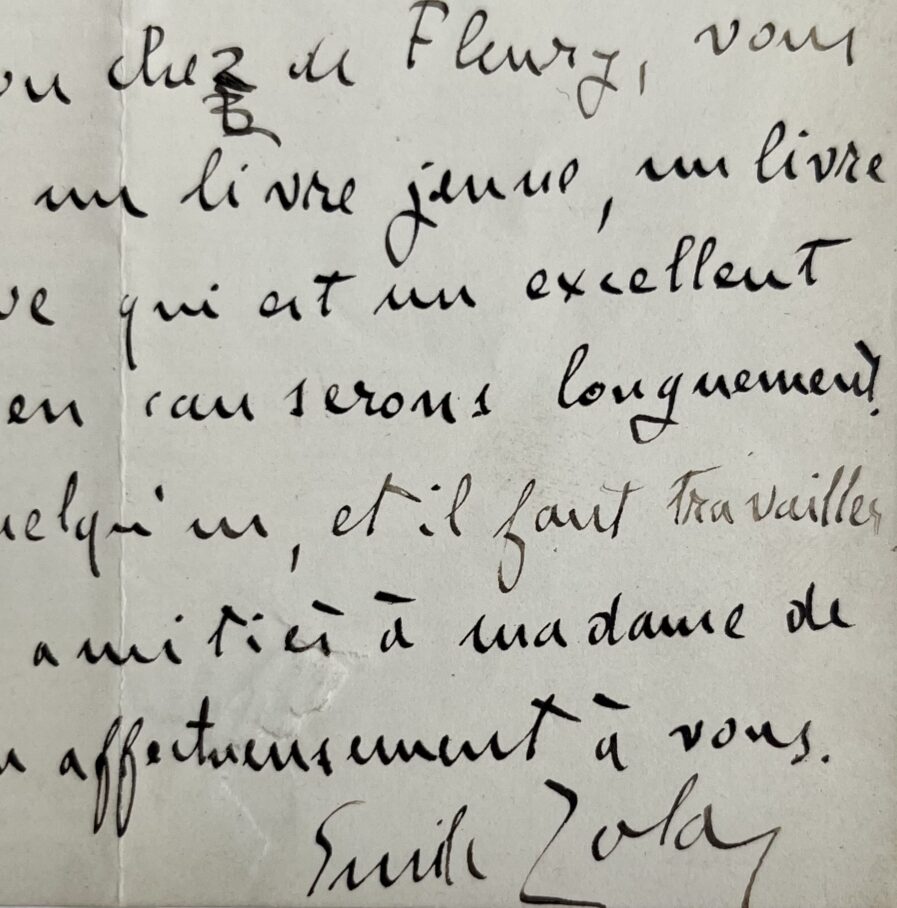 chez de Fleury, vous
un livre jeune, un livre
ve qui est un excellent
en causerons longuement.
uelqu'un, et il faut travailler
amitiés à madame de
affectueusement à vous.
Emile Zola